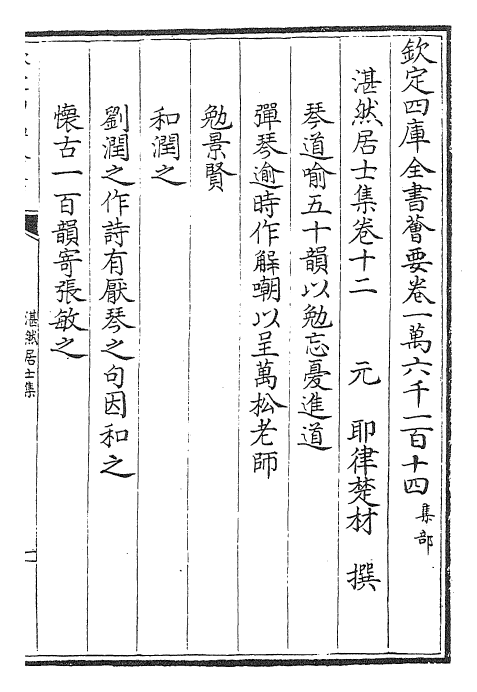 欽定四庫全書薈要卷一萬六千一百十四 集部
湛然居士集卷十二 元 耶律楚材 撰
琴道喻五十韻以勉忘憂進道
彈琴逾時作解嘲以呈萬松老師
勉景賢
和潤之
劉潤之作詩有厭琴之句因和之
懷古一百韻寄張敏之
湛然居士集
一